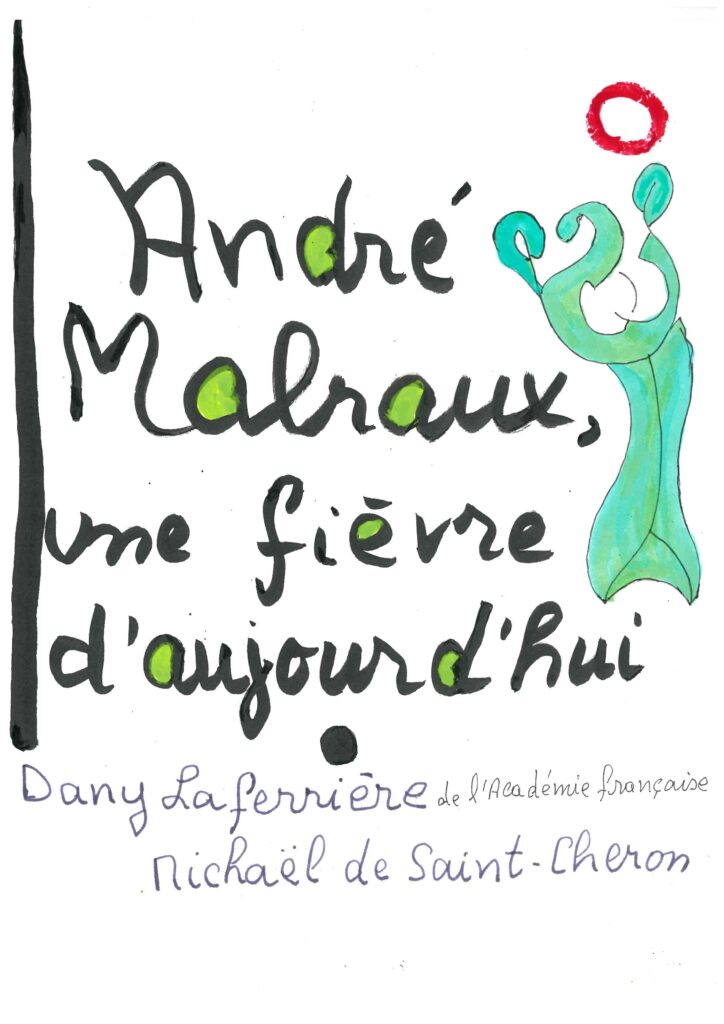 André
Malraux,
une fièvre
d'aujourd'hui
Dany Laferrière de l'Académie française
Michaël de Saint-Cheron